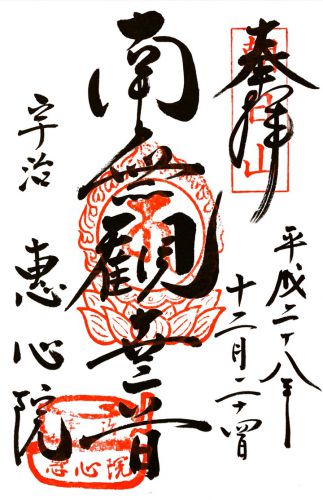 奉拝
平成二十八年
十二月二十四日
南無觀世音
宇治
惠心院
朝日山
恵心院